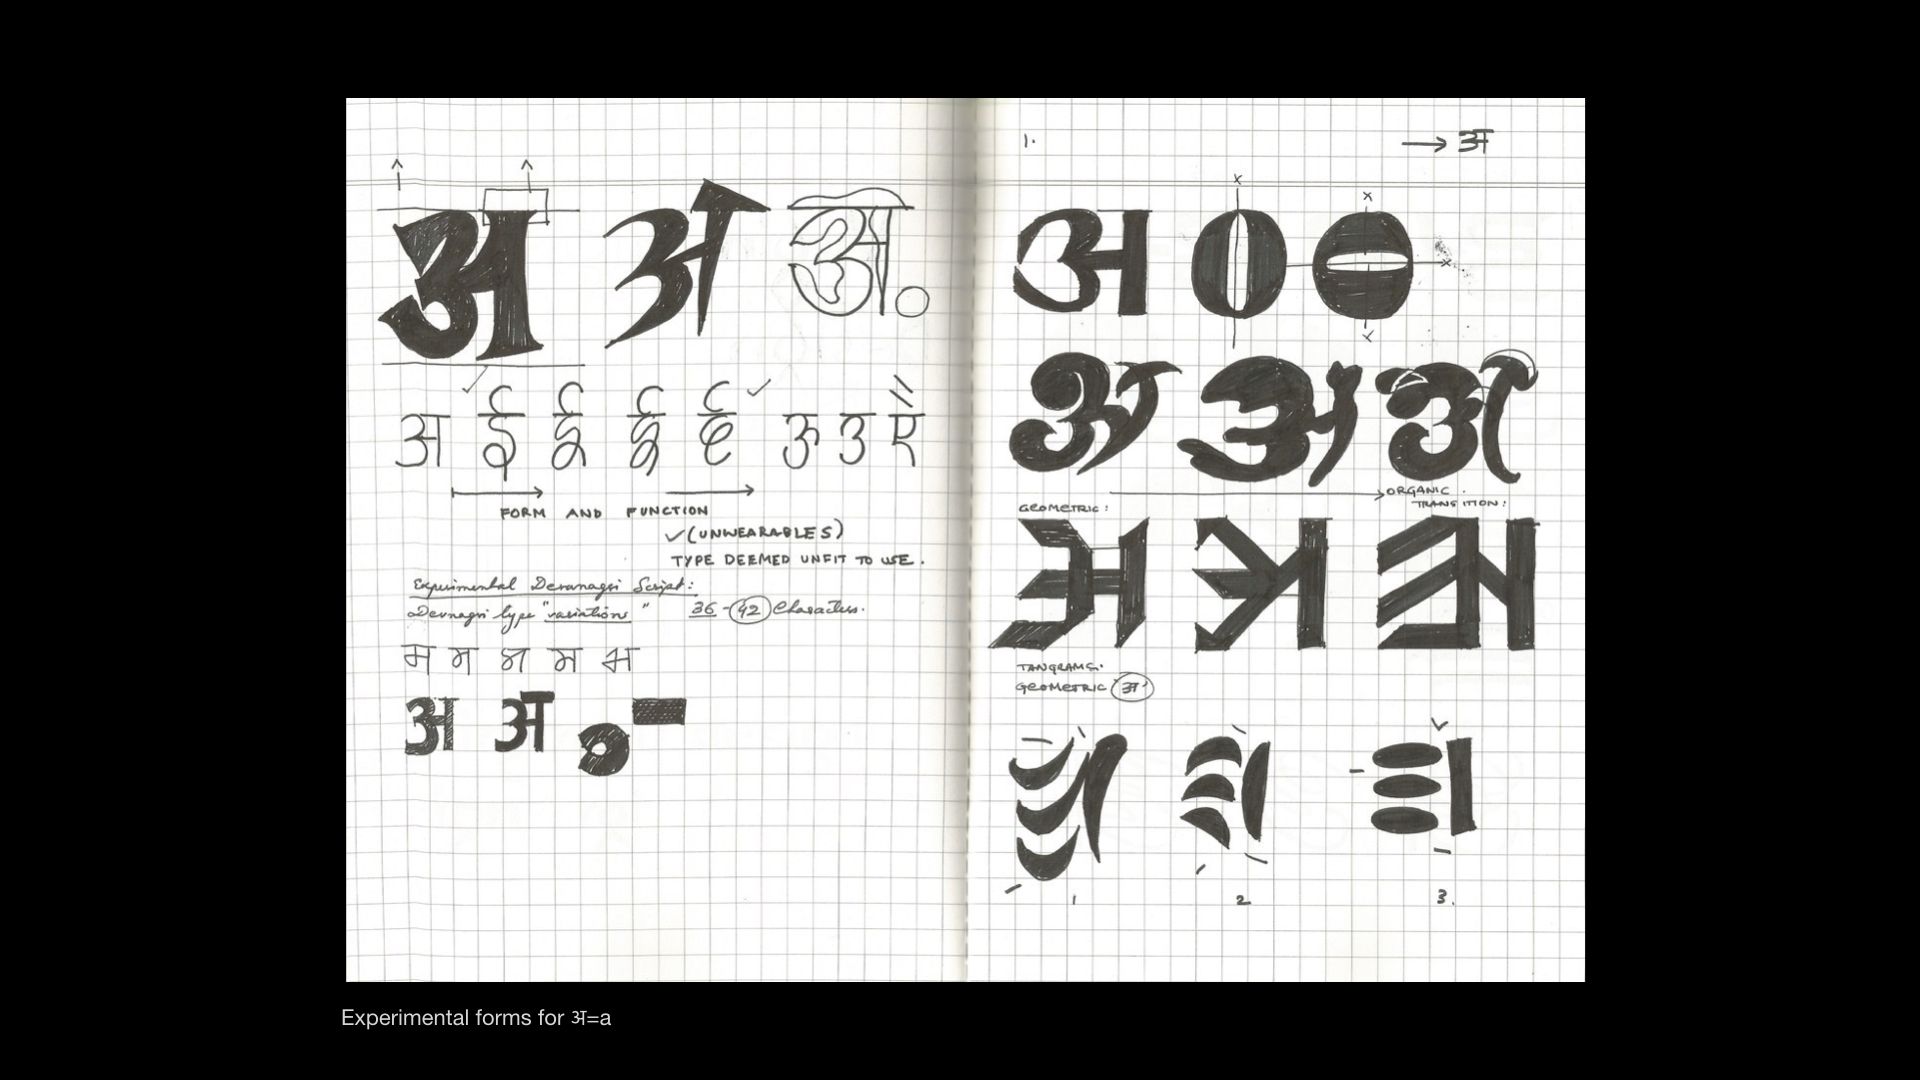 अ अ अ.
अ ई ई ई ई ऊ उ ऐ
FORM AND FUNCTION
✓(UNWEARABLES)
TYPE DEEMED UNFIT TO USE.
Experimental Devanagri Script:
Devnagri type "variation" 36-42 Characters.
अ अ
1. → अ
अ
अ अ अ
GEOMETRIC: → ORGANIC.
TRANSITION:
अ अ अ
TANGRAMS.
GEOMETRIC 'अ'
1 2 3.
Experimental forms for अ=a